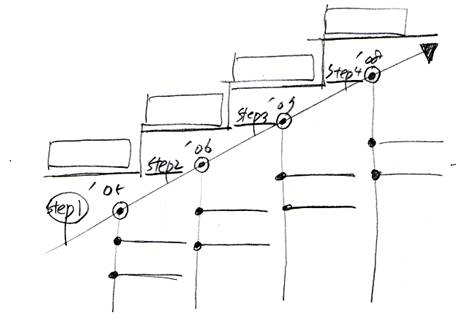 step1 '05
step2 '06
step3 '07
step4 '08